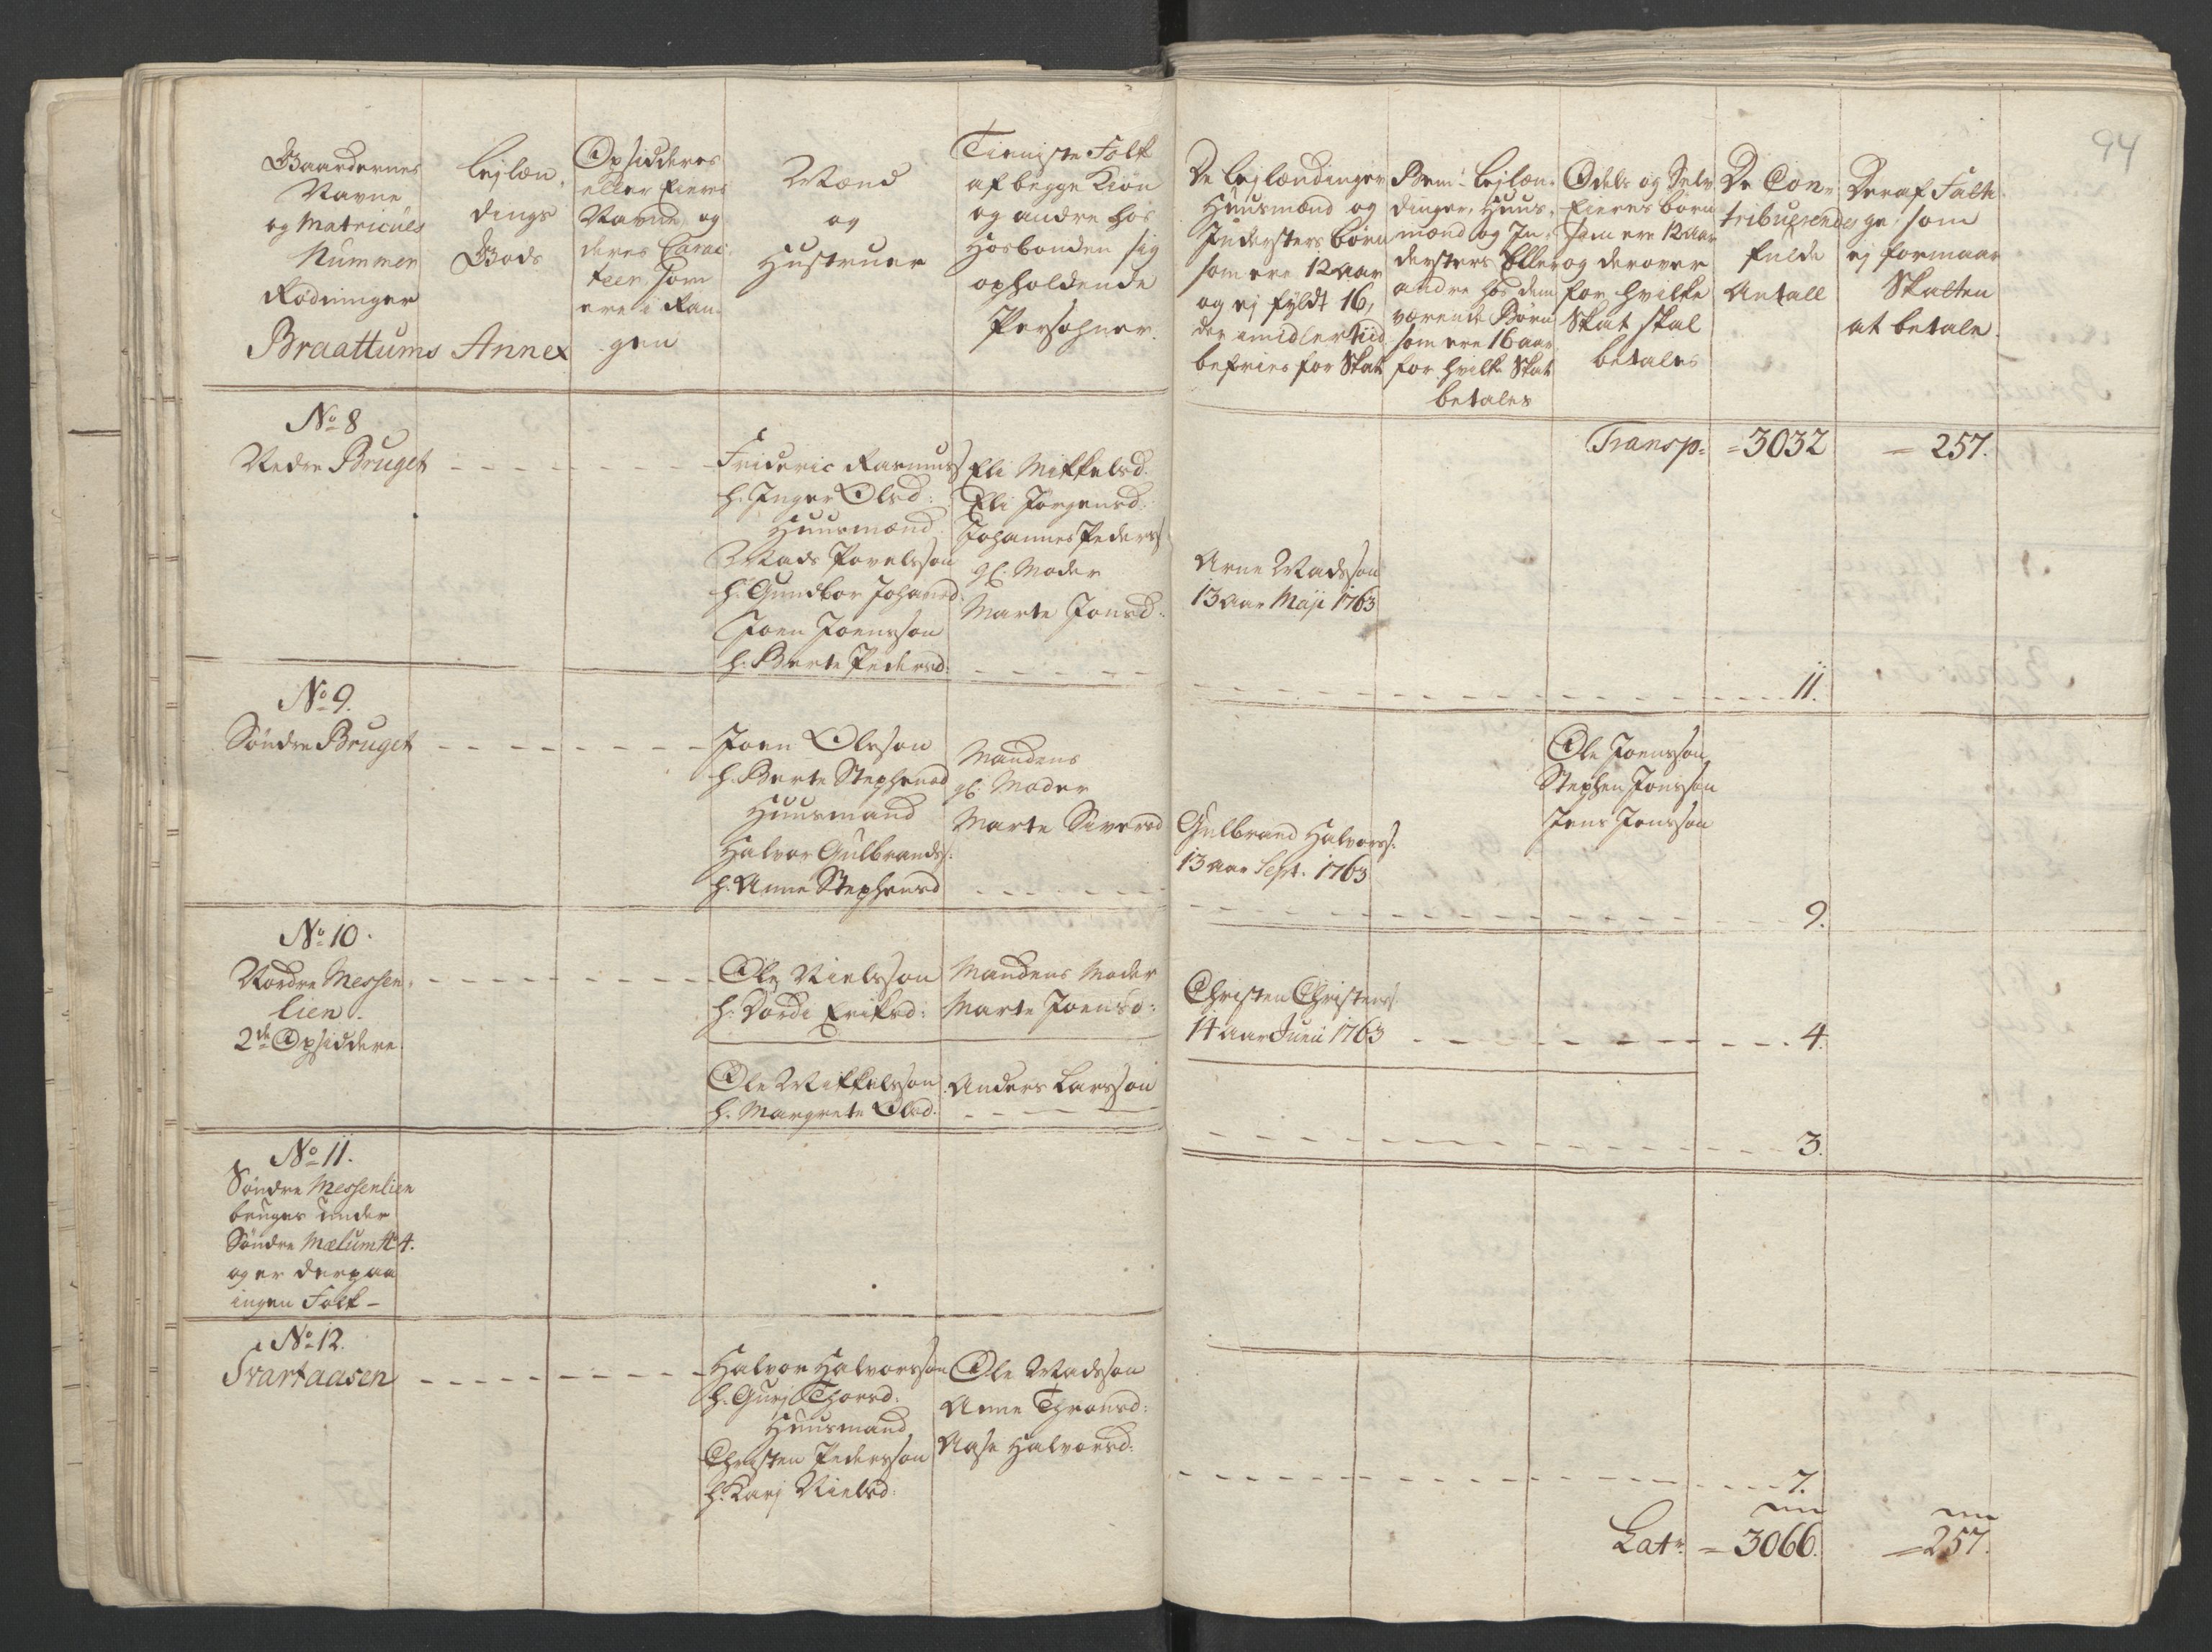 94
Gaardernes
Navne
og Matricüls
Nummer
Rødninger
Braattums Annex
Lejlæn-
dings
Gods
Opsiddere
eller Eieres
Navne og
deres Carac-
teer som
ere i Ran-
gen
Mænd
og
Hustruer
Tieniste Folk
af begge Kiøn
og andre hos
Hosbonden sig
opholdende
Persohner.
De Lejlændinger
Huusmænd og
Indersters børn
som ere 12 aar
og ej fyldt 16,
der imidlertiid
befries for Skat
Bem: Lejlæn-
dinger, Huus-
mænd og In-
dersters Eller
andre hos dem
værende Børn
som ere 16 aar
for hvilke Skat
betales
Odels og Selv
Eieres børn
som ere 12 aar
og derover
for hvilke
Skat skal
betales
De Con-
tribuerendes
fulde
Antall
Deraf Fatti-
ge som
ej formaar
Skatten
at betale.
Transp: = 3032 = 257.
No 8
Nedre Bruget
Frideric Rasmuss
h. Inger Olsd:
Huusmænd
Mads Povelsson
h. Gundbor Johansd.
Joen Joensson
h. Berte Pedersd.
Eli Mikkelsd.
Eli Jørgensd:
Johannes Peders
gl. Moder
Marte Jonsd:
Arne Madsson
13 aar Maji 1763
11.
No 9.
Søndre Bruget
Joen Olesson
h. Berte Stephensd
Huusmand
Halvor Gulbrands:
h. Anne Stephensd
Mandens
gl. Moder
Marte Siversd
Gulbrand Halvors:
13 aar Sept. 1763
Ole Joensson
Stephen Jonsson
Jens Jonsson
9.
No 10.
Nordre Messen-
lien.
2de Opsiddere
Ole Nielsson
h. Dordi Eriksd:
Mandens Moder
Marte Joensd:
Christen Christens:
14 aar Junii 1763
4.
Ole Mikkelsson
h. Margrete Olsd.
Anders Larsson
3.
No 11.
Søndre Messenlien
bruges under
Søndre Mælum No 4.
og er derpaa
ingen Folk –
No 12.
Svartaasen
Halvor Halvorsson
h. Gurj Thorsd:
Huusmand
Christen Pedersson
h. Karj Nielsd:
Ole Madsson
Anne Thronsd:
Aase Halvorsd:
7.
Latr = 3066. = 257.